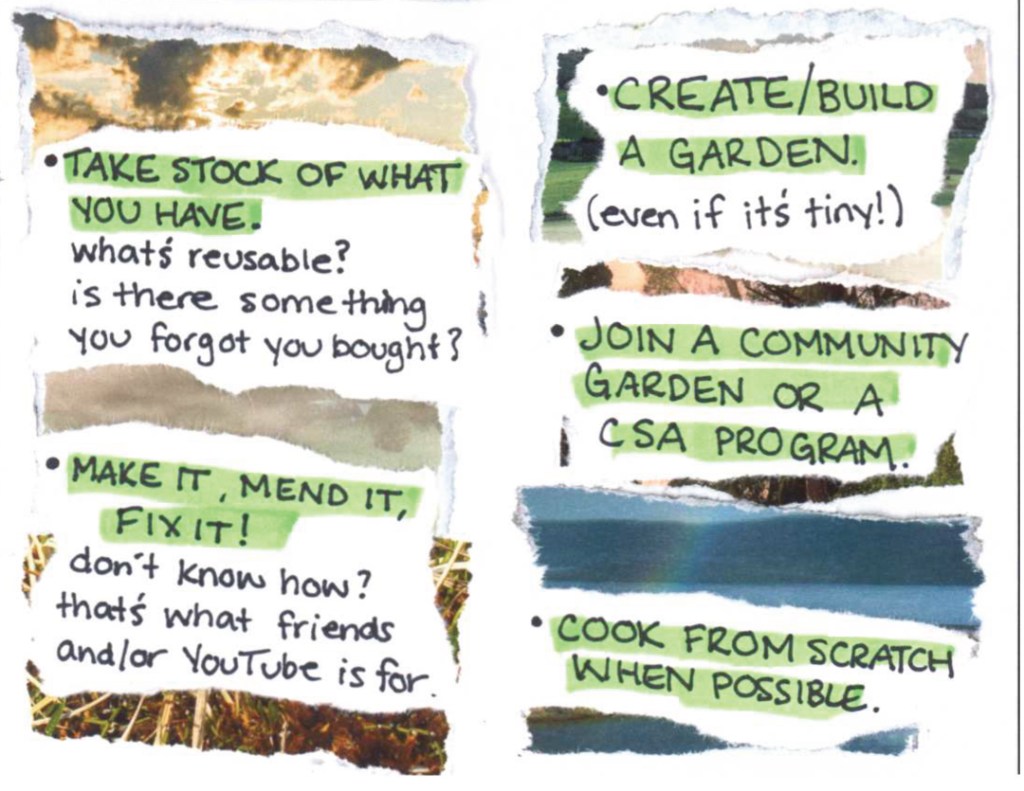 • TAKE STOCK OF WHAT
YOU HAVE.
what's reusable?
is there something
you forgot you bought?
• MAKE IT, MEND IT,
FIX IT!
don't know how?
that's what friends
and/or YouTube is for.
• CREATE/BUILD
A GARDEN.
(even if it's tiny!)
• JOIN A COMMUNITY
GARDEN OR A
CSA PROGRAM.
• COOK FROM SCRATCH
WHEN POSSIBLE.